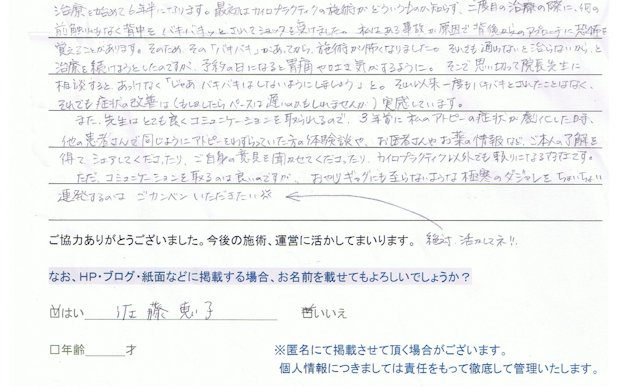 治療を始めて6年半になります。最初はカイロプラクティックの施術がどういうものか知らず、二度目の治療の際に、何の
前触れもなく背中をバキバキッとされてショックを受けました。私はある事故が原因で背後からのアプローチに恐怖を
覚えることがあります。そのため、その「バキバキ」があってから、施術が怖くなりました。それでも通わないと治らないから、と
治療を続けようとしたのですが、予約の日になると胃痛や吐き気がするように。そこで思い切って院長先生に
相談するとあっけなく「じゃあバキバキはしないようにしましょう」と。それ以来一度もバキバキとされたことはなく、
それでも症状の改善は(もしかしたらペースは遅いかもしれませんが)実感しています。
また、先生はとても良くコミュニケーションを取られるので、3年前に私のアトピーの症状が悪化した時、
他の患者さんで同じようにアトピーをわずらっていた方の体験談や、お医者さんやお薬の情報など、ご本人の了解を
得てシェアしてくださったり、ご自身の意見を聞かせてくださったり、カイロプラクティック以外でも頼りになる存在です。
ただ、コミュニケーションを取るのは良いのですが、おやじギャグにも至らないような極寒のダジャレをちょいちょい
連発するのは ゴカンベンいただきたい
ご協力ありがとうございました。今後の施術、運営に活かしてまいります。 絶対、活かしてネ!!
なお、HP・ブログ・紙面などに掲載する場合、お名前を載せてもよろしいでしょうか?
はい 佐藤恵子 いいえ
□年齢 才 ※匿名にて掲載させて頂く場合がございます。
個人情報につきましては責任をもって徹底して管理いたします。